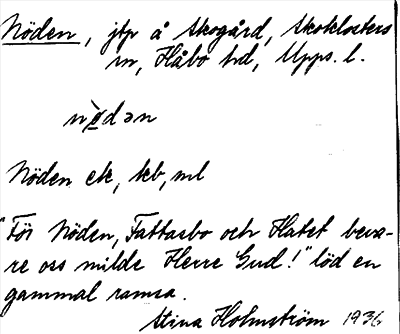 Nöden, jtp å Skogård, Skoklosters
sn, Håbo hd, Upps. l.
nø̀dən
Nöden ek, kb, ml
"För Nöden, Fattasbo och Hatet beva-
re oss milde Herre Gud!" löd en
gammal ramsa.
Stina Holmström 1936